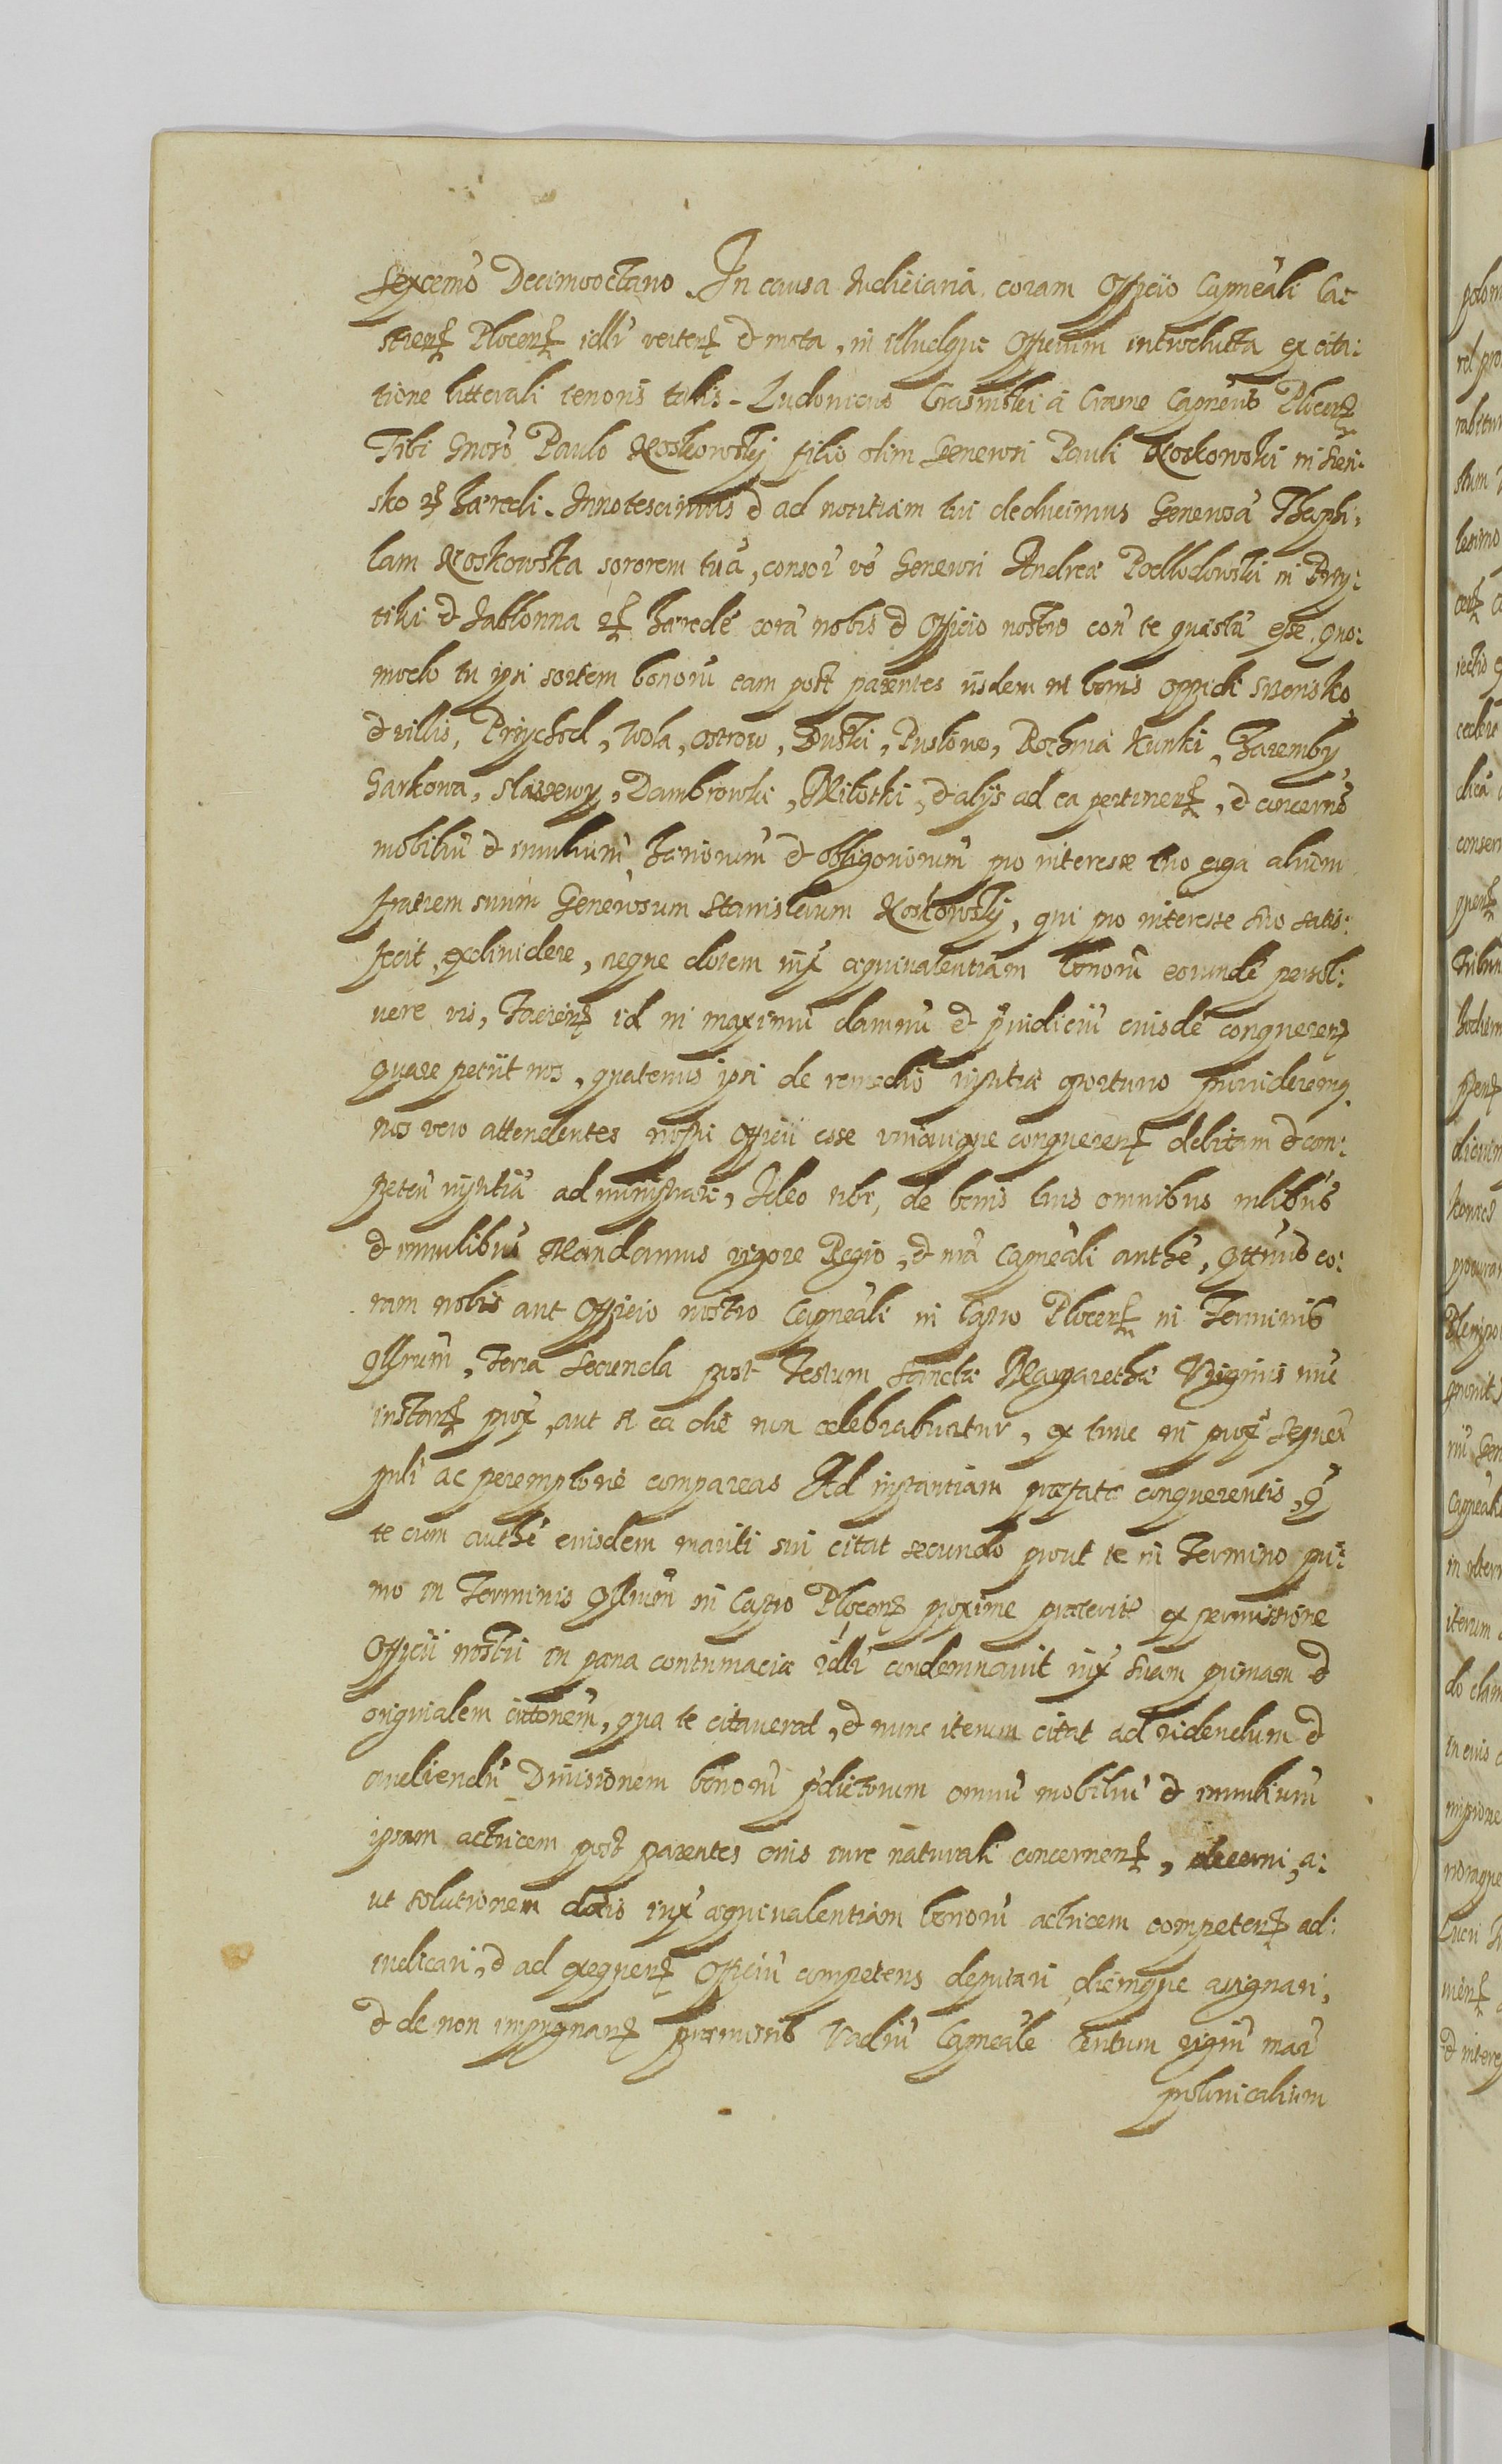 Sexcemo Decimooctavo. In causa Iudiciaria coram Officio Capneali Cas
trens Plocens idlr vertens et mota, in illudque Officium introducta ex cita:
tione litterali tenoris talis. Ludovicus Crasinski a Crasne Capneus Plocens
Tibi Gnoso Paulo Koskowskj filio olim Generosi Pauli Koskowski in Sren:
sko etc haeredi. Innotescimus et ad notitiam tui deducimus Generosa Theophi,
lam Koskowska sororem tuã, consor vo Generosi Andreae Podlodowski in Przy:
tiki et Jablonna etc haerede corã nobis et Officio nostro con te quaestã esse. quo:
modo tu ipsi sortem bonorũ eam post parentes iisdem in bonis oppidi Srensko
et villis, Przychod, Wola, Ostrow, Duski, Pustove, Rochnia Kunki, Zaremby
Garkowa, Slawewy, Dambrowski, Milotki, et alijs ad ea pertinens, et concerno
mobiliũ et immlium, haeriorum et obligoniorum pro interesse tuo erga alium
fratrem suum Generosum Stanislaum Koskowskj, qui pro interesse suo satis:
fecit, exdividere, neque dotem iux aequivalentiam bonorũ eorundẽ persol:
vere vis, Faciens id in maximũ damnũ et pruidiciũ eiusdẽ conquerens
quare petiit nos, quatenus ipsi de remedio iustitiae oportuno provideremq.
nos vero attendentes nostri Officii esse unicuique conquerens debitam et com:
peten iustitiã administrari, Ideo tibi, de bonis tuis omnibus mlibus
et immlibus Mandamus vigore Regio, et nrã Capneali authe, qttnus co:
ram nobis aut Officio nostro Capneali in Castro Plocens in Terminis
qllrum, Feria Secunda post Festum Sanctae Margarethae Virginis nũc
instans prox, aut si ea die non celebrabuntur, ex tunc in prox seques
pnlr ac peremptorie compareas Ad instantiam praefatae conquerentis, q
te cum authe eiusdem mariti sui citat secundo prout te in Termino pri:
mo in Terminis qllrum in Castro Plocens proxime praeterit ex permissione
Officii nostri in paena contumaciae idlr condemnavit iux suam primam et
originalem cittonem, qua te citaverat, et nunc iterum citat ad videndum et
audiendũ Divisionem bonorũ pdictorum omniũ mobiliũ et immlium
ipsam actricem post parentes eius iure naturali concernens, decerni, a:
ut solutionem dotis iux aequivalentiam bonorũ actricem competens ad:
iudicari, et ad exequens Officiũ competens deputari diemque assignari,
et de non impugnans praemissis Vadiũ Capneale Centum vigin mar
polonicalium